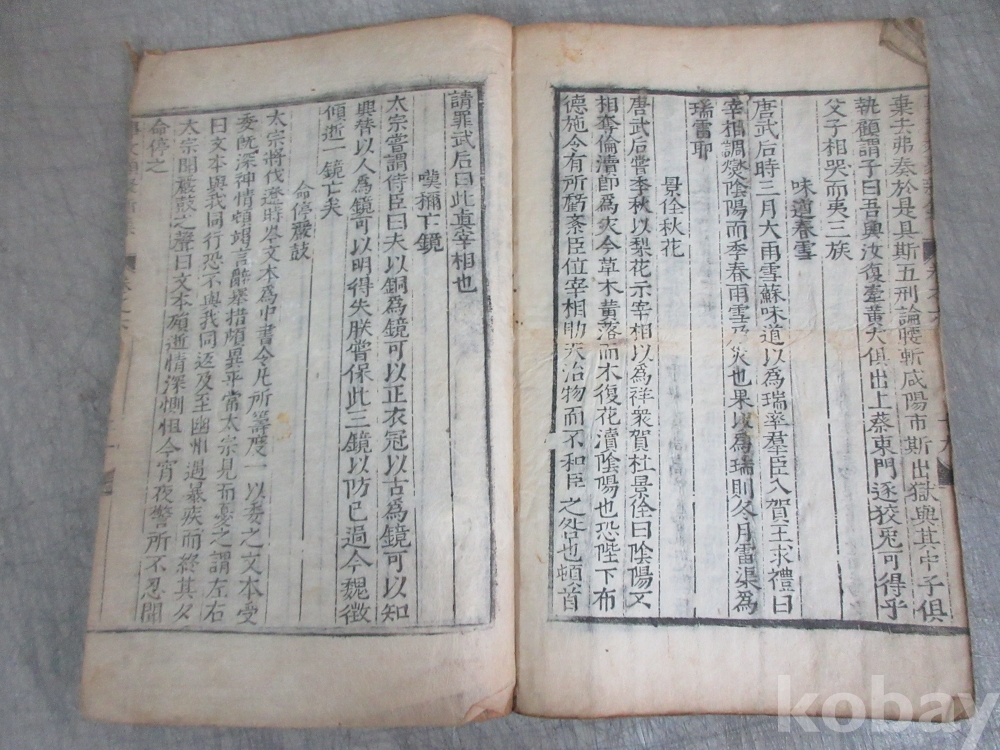 棄去弗奏於是具斯五刑論腰斬咸陽市斯出獄與其中子俱
執顧謂子曰吾與汝復牽黃犬俱出上蔡東門逐狡兎可得乎
父子相哭而夷三族
味道春雪
唐武后時三月大雨雪蘇味道以爲瑞率羣臣入賀王求禮曰
宰相調燮陰陽而季春雨雪乃灾也果以爲瑞則冬月雷渠爲
瑞雷耶
景佺秋花
唐武后嘗季秋以梨花示宰相以爲祥衆賀杜景佺曰陰陽不
相奪倫瀆即爲灾今草木黃落而木復花瀆陰陽也恐陛下布
德施令有所虧紊臣位宰相助天治物而不和臣之咎也頓首
請罪武后曰此眞宰相也
嘆徵亡鏡
太宗嘗謂侍臣曰夫以銅爲鏡可以正衣冠以古爲鏡可以知
興替以人爲鏡可以明得失朕嘗保此三鏡以防己過今魏徵
傾逝一鏡亡矣
命停嚴鼓
太宗將伐遼時岑文本爲中書令凡所籌度一以委之文本受
委旣深神情頓竭言辭擧措頗異平常太宗見而憂之謂左右
曰文本與我同行恐不與我同返及至幽州遇暴疾而終其夕
太宗聞嚴鼓之聲曰文本殞逝情深惻怛今宵夜警所不忍聞
命停之
kobay